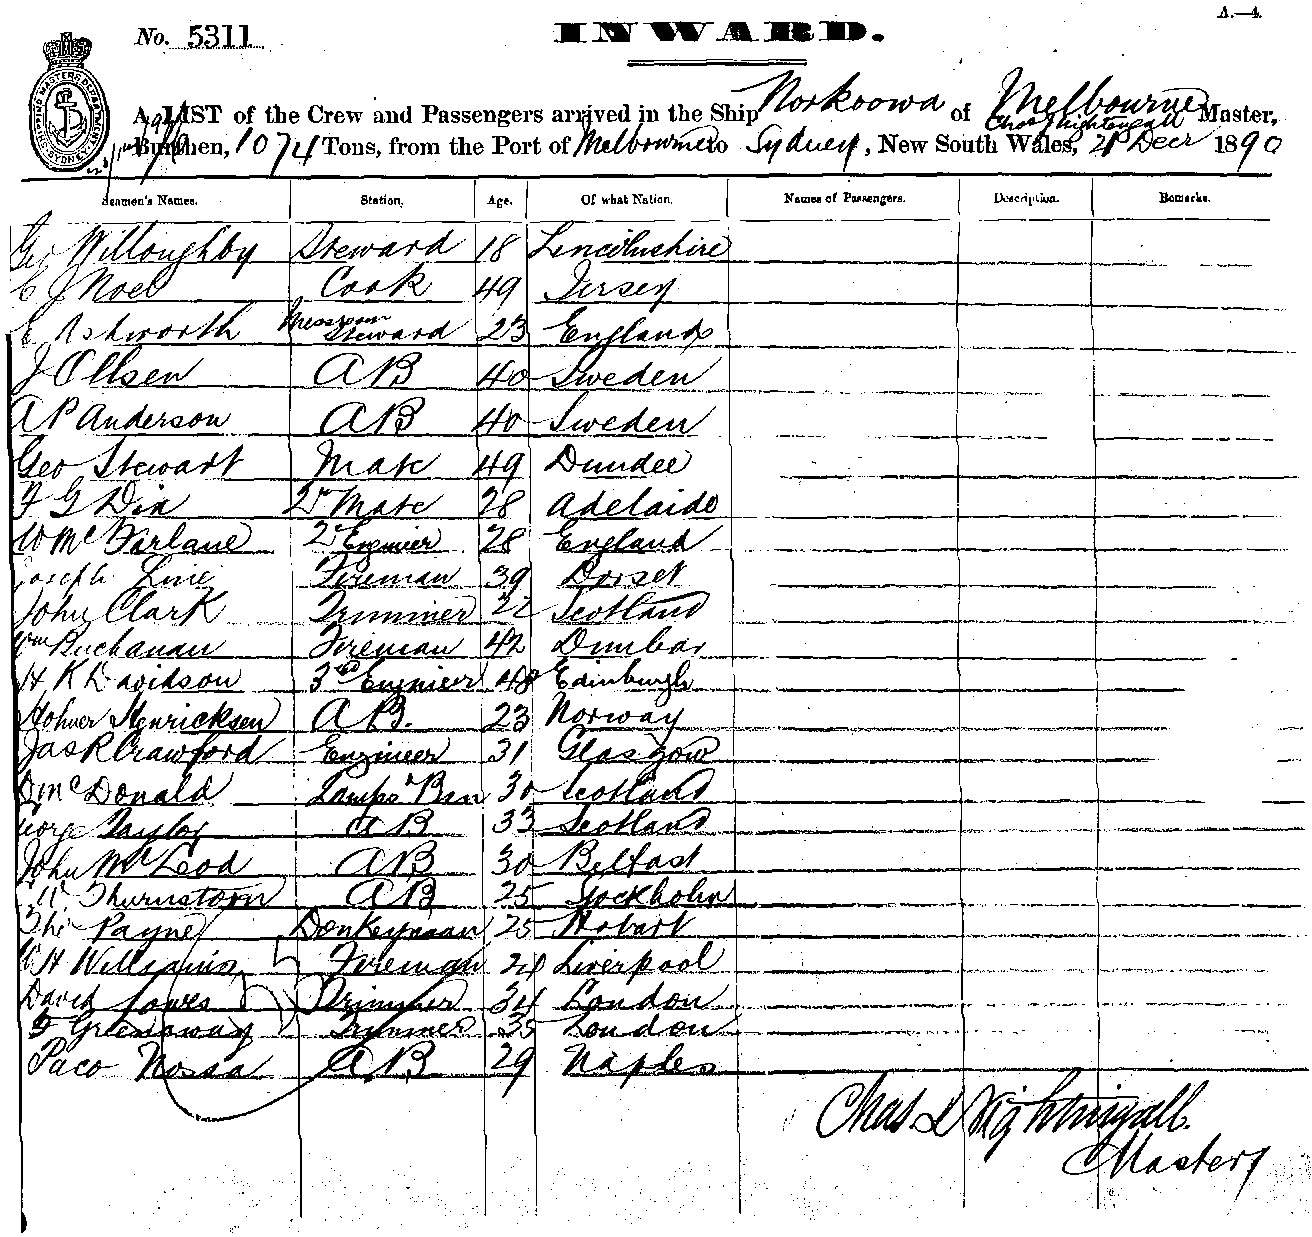 A.—4.
No. 5311
INWARD.
SHIPPING MASTERS DEPARTMENT SYDNEY
A LIST of the Crew and Passengers arrived in the Ship Norkoowa of Melbourne Chas Nightengall Master,
Burthen, 1074 Tons, from the Port of Melbourne to Sydney, New South Wales, 21st Decr 1890
Seamen's Names. Station. Age. Of what Nation. Names of Passengers. Description. Remarks.
Geo Willoughby Steward 18 Lincolnshire
C J Noel Cook 49 Jersey
E Ashworth Messroom Steward 23 England
J Ollsen AB 40 Sweden
A P Anderson AB 40 Sweden
Geo Stewart Mate 49 Dundee
F G Dix 2nd Mate 28 Adelaide
W McFarlane 2nd Engineer 28 England
Joseph Line Fireman 39 Dorset
John Clark Trimmer 22 Scotland
Wm Buchanan Fireman 42 Dunbar
H K Davidson 3rd Engineer 48 Edinburgh
Holmer Henricksen A B. 23 Norway
Jas R Crawford Engineer 31 Glasgow
D McDonald Lamps 30 Scotland
George Taylor AB 33 Scotland
John McLeod AB 30 Belfast
Thurnstorn AB 25 Stockholm
Payne Donkeyman 25 Hobart
W H Williams Fireman 24 Liverpool
David Jones Trimmer 34 London
F Greenaway Trimmer 35 London
Paco Nossa A.B. 29 Naples
Chas L Nightingall.
Master